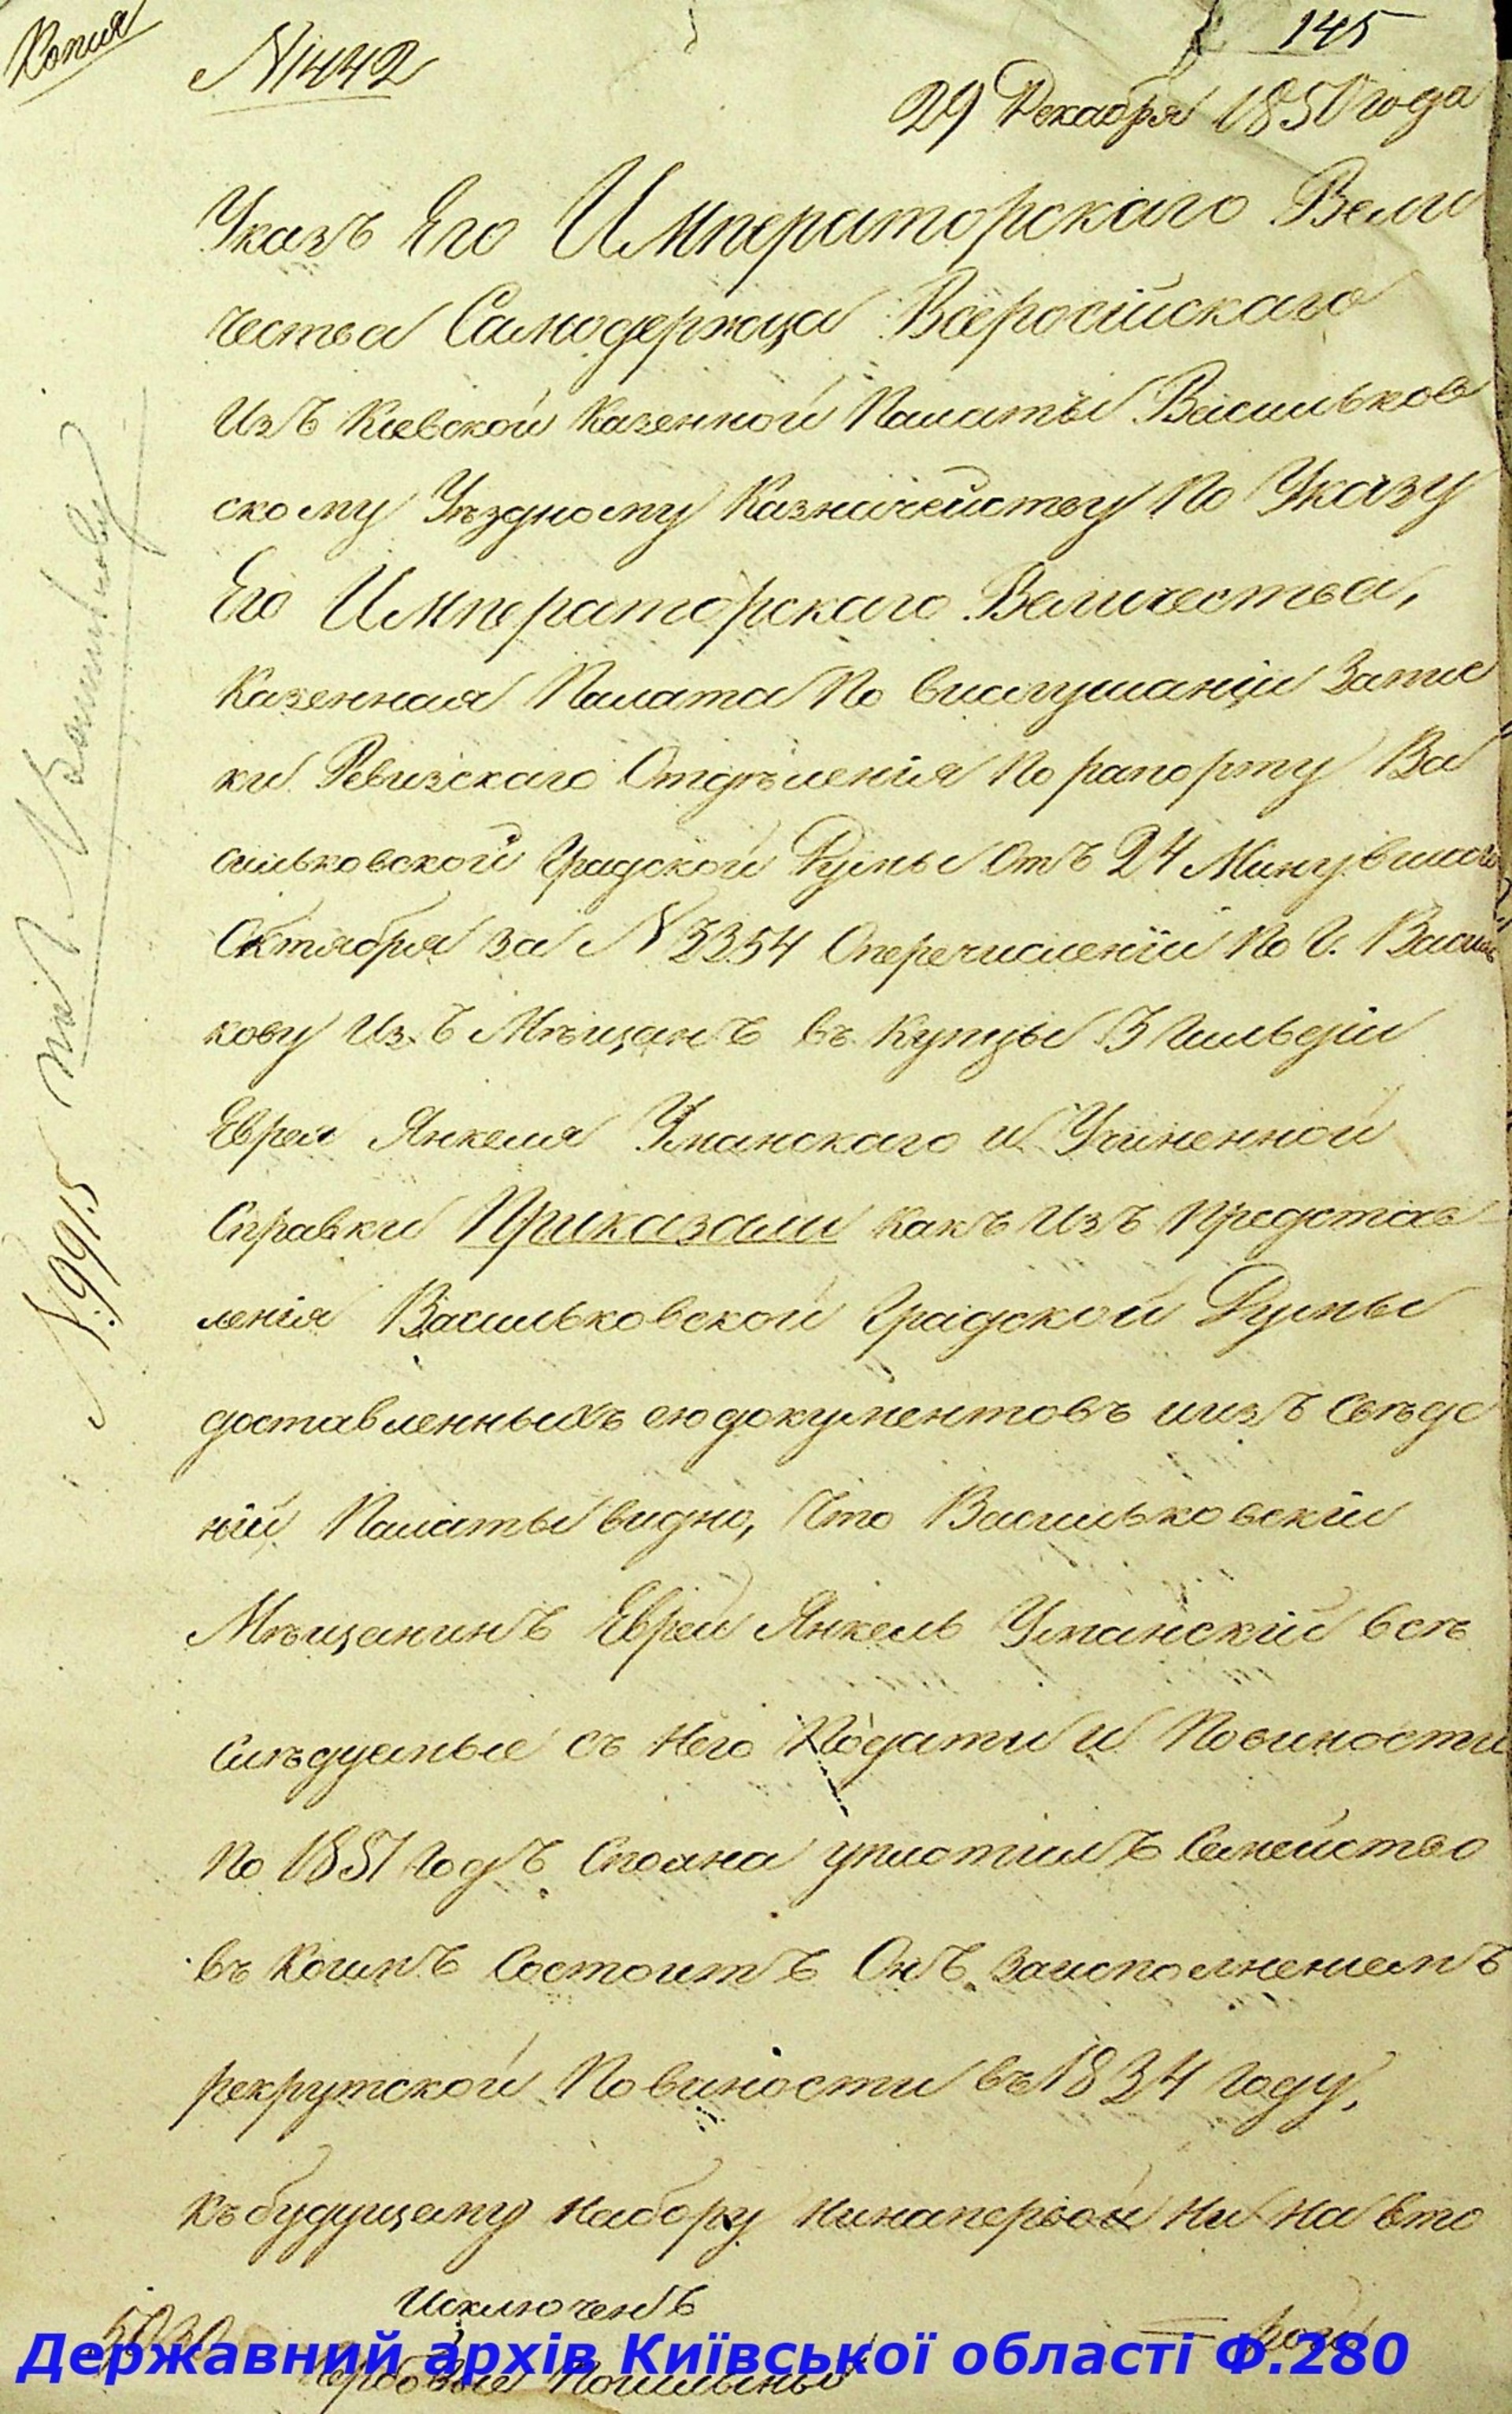 Копия
№ 1442
145
29 Декабря 1850 года
Указъ Его Императорскаго Вели
чества Самодержца Всеросійскаго
Изъ Кіевской Казенной Палаты Васильков
скому Уѣздному Казначейству По Указу
Его Императорскаго Величества,
Казенная Палата По выслушаніи Запис
ки Ревизскаго Отдѣленія По рапорту Ва
сильковской Градской Думы Отъ 24 Минувшаго
Октября За № 3354 О перечисленіи По Г. Василь
кову Изъ Мѣщанъ въ Купцы 3 Гильдіи
Еврея Янкеля Уманскаго и Учиненной
Справки Приказали какъ Изъ Представ
ленія Васильковской Градской Думы
доставленныхъ ею документовъ и изъ Свѣдѣ
ній Палаты видно, Что Васильковскій
Мѣщанинъ Еврей Янкель Уманскій всѣ
Слѣдуемые съ Него Подати и Повиности
По 1851 Годъ Сполна уплотилъ Семейство
въ коимъ Состоитъ Онъ За исполнениемъ
рекрутской Повиности въ 1834 Году,
Къ будущему Набору ни на первой Ни На вто
рой
Исключенъ
5030
Гербовые Пошлины
№ 9915
Державний архів Київської області Ф.280